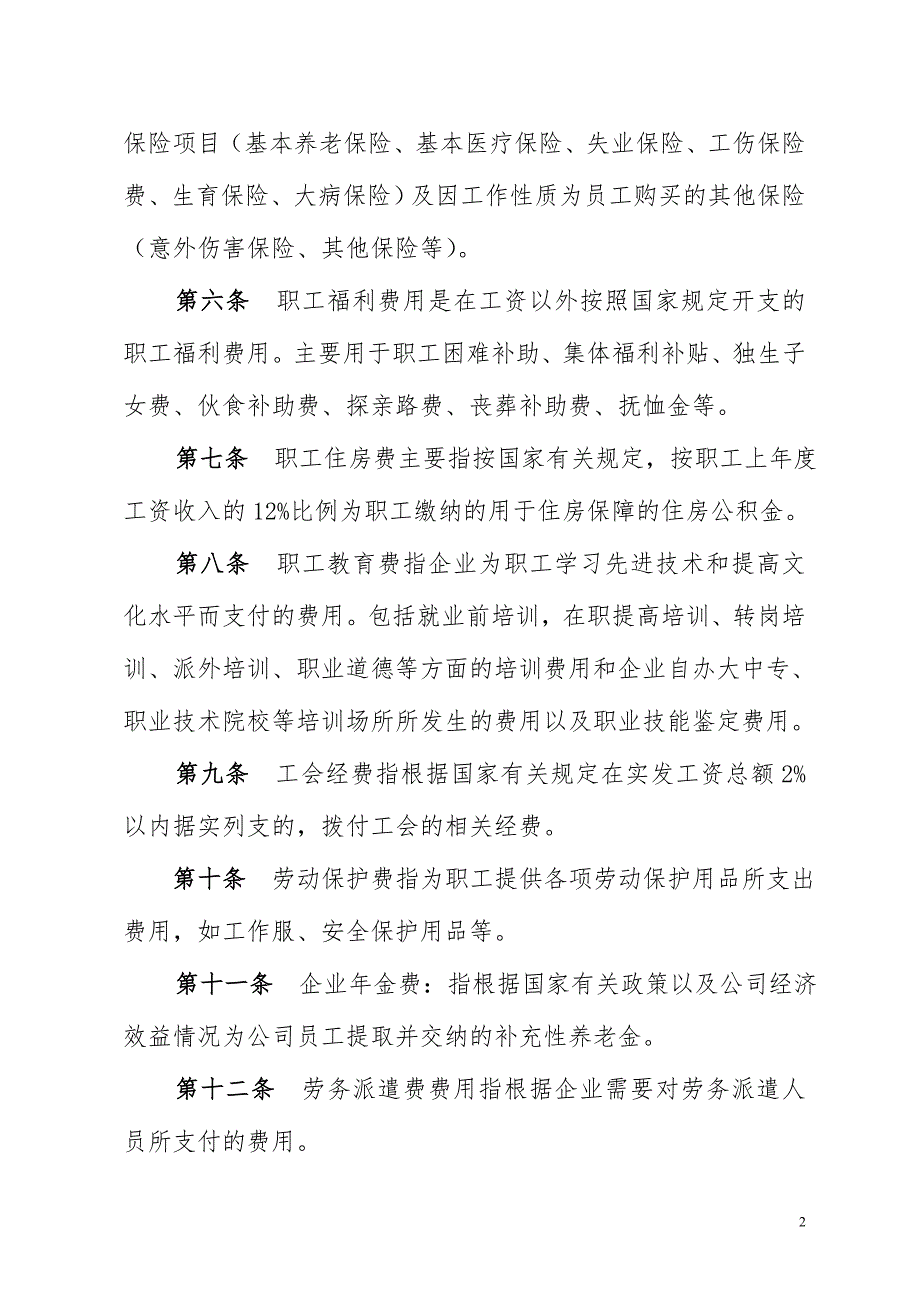 保险项目（基本养老保险、基本医疗保险、失业保险、工伤保险
费、生育保险、大病保险）及因工作性质为员工购买的其他保险
（意外伤害保险、其他保险等）。
第六条　职工福利费用是在工资以外按照国家规定开支的
职工福利费用。主要用于职工困难补助、集体福利补贴、独生子
女费、伙食补助费、探亲路费、丧葬补助费、抚恤金等。
第七条　职工住房费主要指按国家有关规定，按职工上年度
工资收入的12%比例为职工缴纳的用于住房保障的住房公积金。
第八条　职工教育费指企业为职工学习先进技术和提高文
化水平而支付的费用。包括就业前培训，在职提高培训、转岗培
训、派外培训、职业道德等方面的培训费用和企业自办大中专、
职业技术院校等培训场所所发生的费用以及职业技能鉴定费用。
第九条　工会经费指根据国家有关规定在实发工资总额2%
以内据实列支的，拨付工会的相关经费。
第十条　劳动保护费指为职工提供各项劳动保护用品所支出
费用，如工作服、安全保护用品等。
第十一条　企业年金费：指根据国家有关政策以及公司经济
效益情况为公司员工提取并交纳的补充性养老金。
第十二条　劳务派遣费费用指根据企业需要对劳务派遣人
员所支付的费用。
2